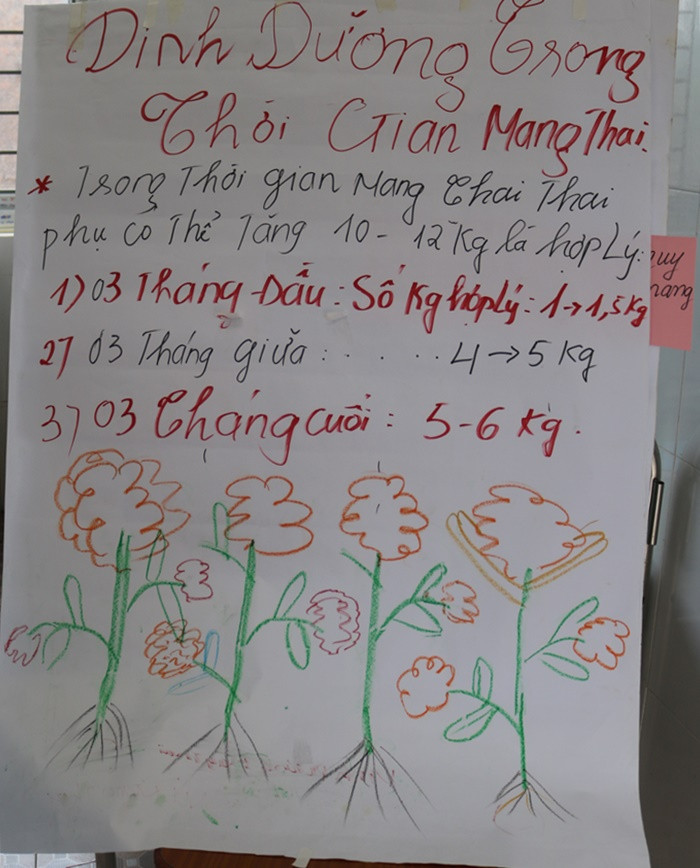 Dinh Dưỡng Trong
Thời Gian Mang Thai.
* Trong Thời gian Mang Thai Thai
phụ có Thể Tăng 10 - 12 Kg là hợp Lý:
1) 03 Tháng Đầu: Số Kg hợp Lý: 1 → 1,5 Kg
2) 03 Tháng giữa : . . . . . 4 → 5 Kg
3) 03 Tháng cuối: 5-6 Kg.
uy
nang